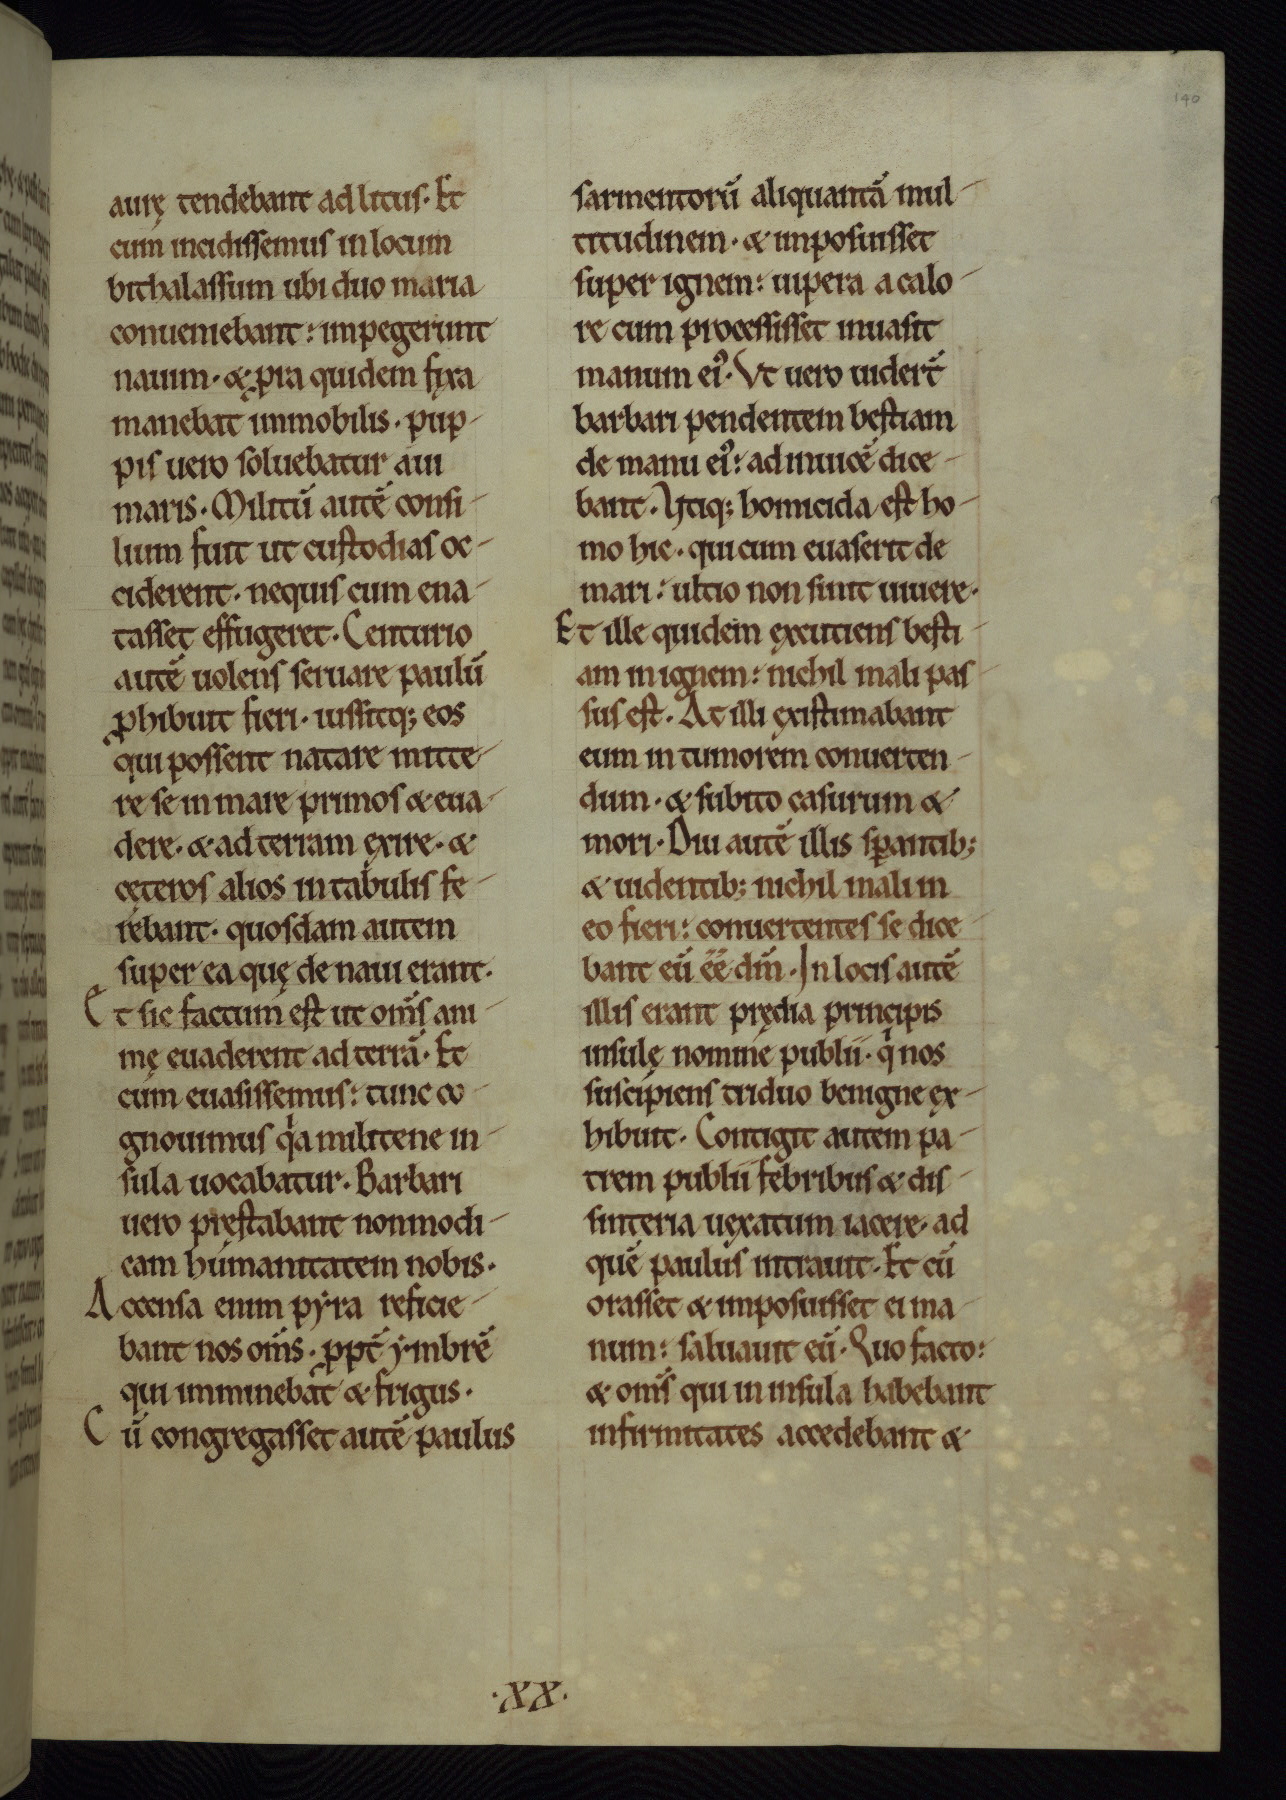 140
aurę tendebant ad litus· Et
cum incidissemus in locum
bithalassum ubi duo maria
conueniebant: impegerunt
nauim· & ꝓra quidem fixa
manebat immobilis· pup-
pis uero soluebatur a ui
maris· Militū autē consi-
lium fuit ut custodias oc-
ciderent· nequis cum ena-
tasset effugeret· Centurio
autē uolens seruare paulū
ꝓhibuit fieri· iussitq; eos
qui possent natare mitte-
re se in mare primos & eua-
dere· & ad terram exire· &
cęteros alios in tabulis fe-
rebant· quosdam autem
super ea quę de naui erant·
Et sic factum est ut om̄s ani-
mę euaderent ad terrā· Et
cum euasissemus: tunc co-
gnouimus qa militene in-
sula uocabatur· Barbari
uero pręstabant non modi-
cam humanitatem nobis·
Accensa enim pẏra reficie-
bant nos om̄s· ꝓpt̄ ẏmbrē
qui imminebat & frigus·
Cū congregasset autē paulus
sarmentorū aliquantā mul-
titudinem· & imposuisset
super ignem: uipera a calo-
re cum processisset inuasit
manum ei᾿· Vt uero uidert̄
barbari pendentem bestiam
de manu ei᾿: adinuicē dice-
bant· Utiq; homicida est ho-
mo hic· qui cum euaserit de
mari: ultio non sinit uiuere·
Et ille quidem excutiens besti-
am in ignem: nichil mali pas-
sus est· At illi existimabant
eum in tumorem conuerten-
dum· & subito casurum &
mori· Diu autē illis sꝑantib;
& uidentib; nichil mali in
eo fieri: conuertentes se dice-
bant eū ēē dm̄· In locis autē
illis erant prędia principis
insulę nomine publii· q nos
suscipiens triduo benigne ex-
hibuit· Contigit autem pa-
trem publii febribus & dis-
sinteria uexatum iacere· ad
quē paulus intrauit· Et cū
orasset & imposuisset ei ma-
num: saluauit eū· Quo facto:
& om̄s qui in insula habebant
infirmitates accedebant &
·XX·